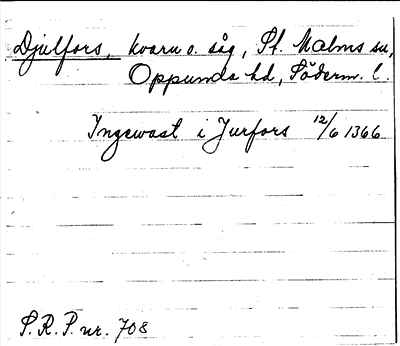 Djulfors, kvarn o. såg, St. Malms sn,
Oppunda hd, Söderm. l.
Ingewast i Jurfors 12/6 1366
S.R.P. nr. 708